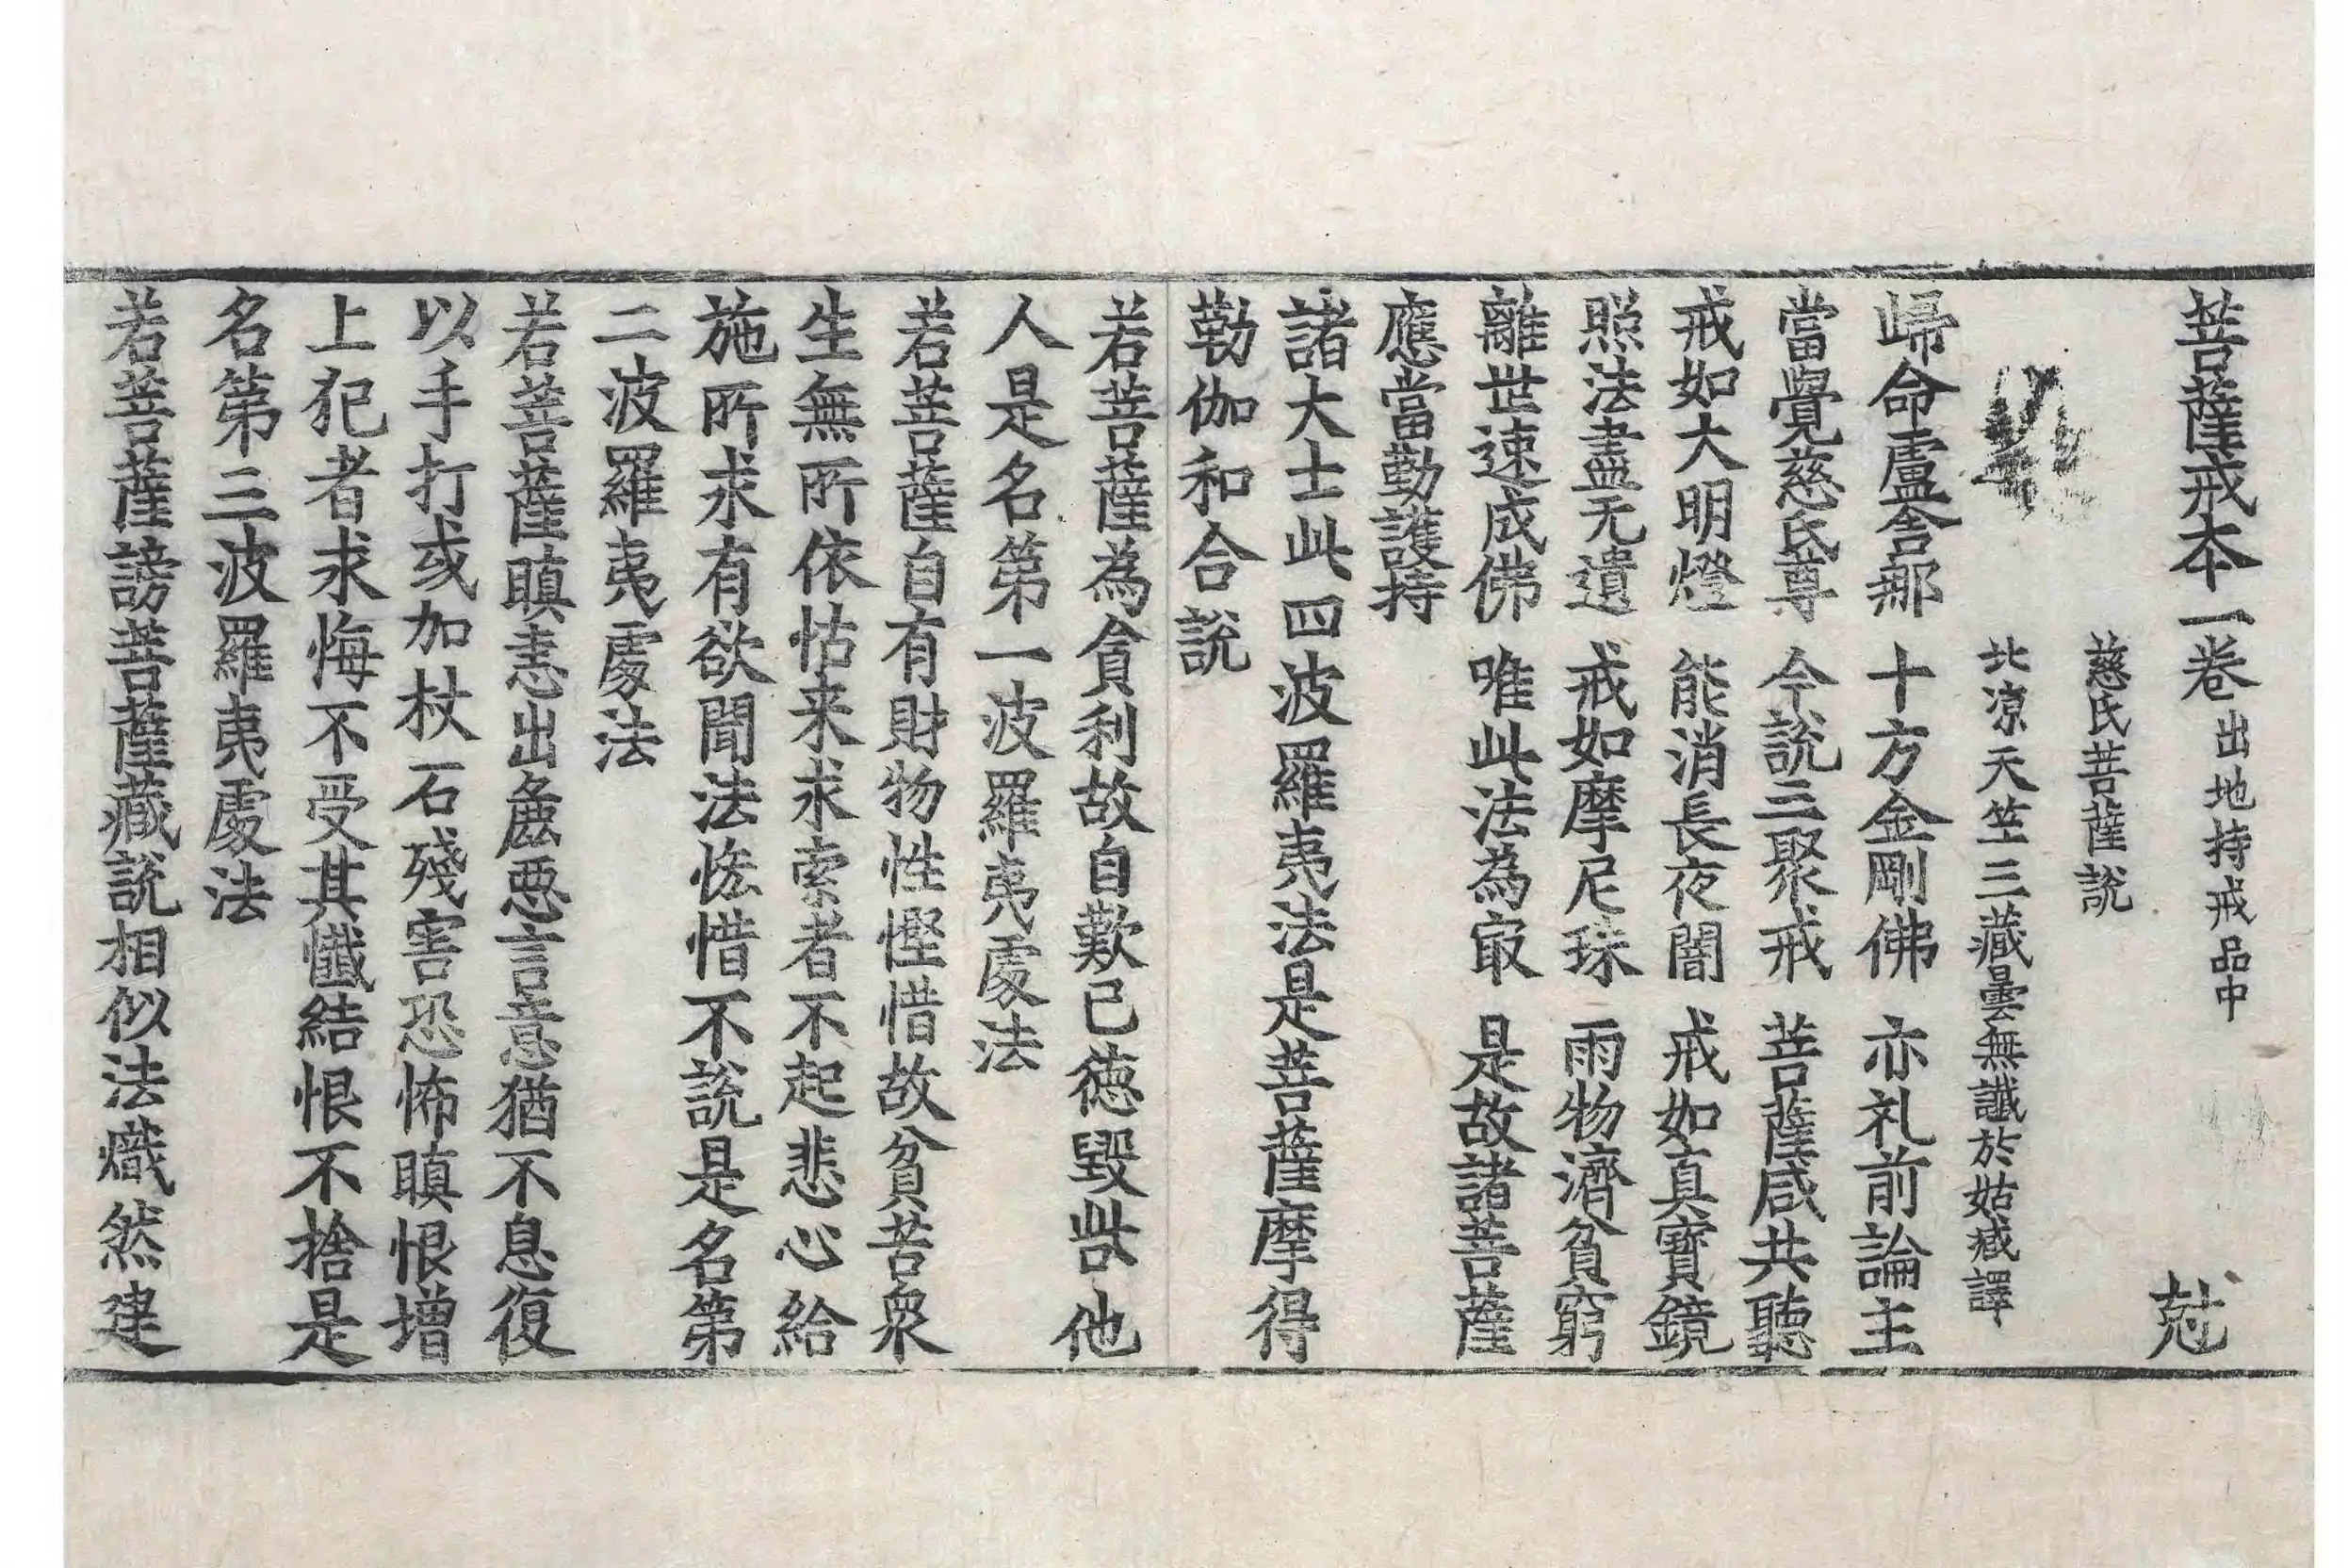 菩薩戒本一卷 出地持戒品中 尅
慈氏菩薩說
北涼天竺三藏曇無讖於姑臧譯
歸命盧舍那 十方金剛佛 亦礼前論主
當覺慈氏尊 今說三聚戒 菩薩咸共聽
戒如大明燈 能消長夜闇 戒如真寶鏡
照法盡无遺 戒如摩尼珠 雨物濟貧窮
離世速成佛 唯此法為㝡 是故諸菩薩
應當勤護持
諸大士此四波羅夷法是菩薩摩得
勒伽和合說
若菩薩為貪利故自歎己德毀呰他
人是名第一波羅夷處法
若菩薩自有財物性慳惜故貧苦衆
生無所依怙来求索者不起悲心給
施所求有欲聞法恡惜不說是名第
二波羅夷處法
若菩薩瞋恚出麁惡言意猶不息復
以手打或加杖石殘害恐怖瞋恨增
上犯者求悔不受其懺結恨不捨是
名第三波羅夷處法
若菩薩謗菩薩藏說相似法熾然建